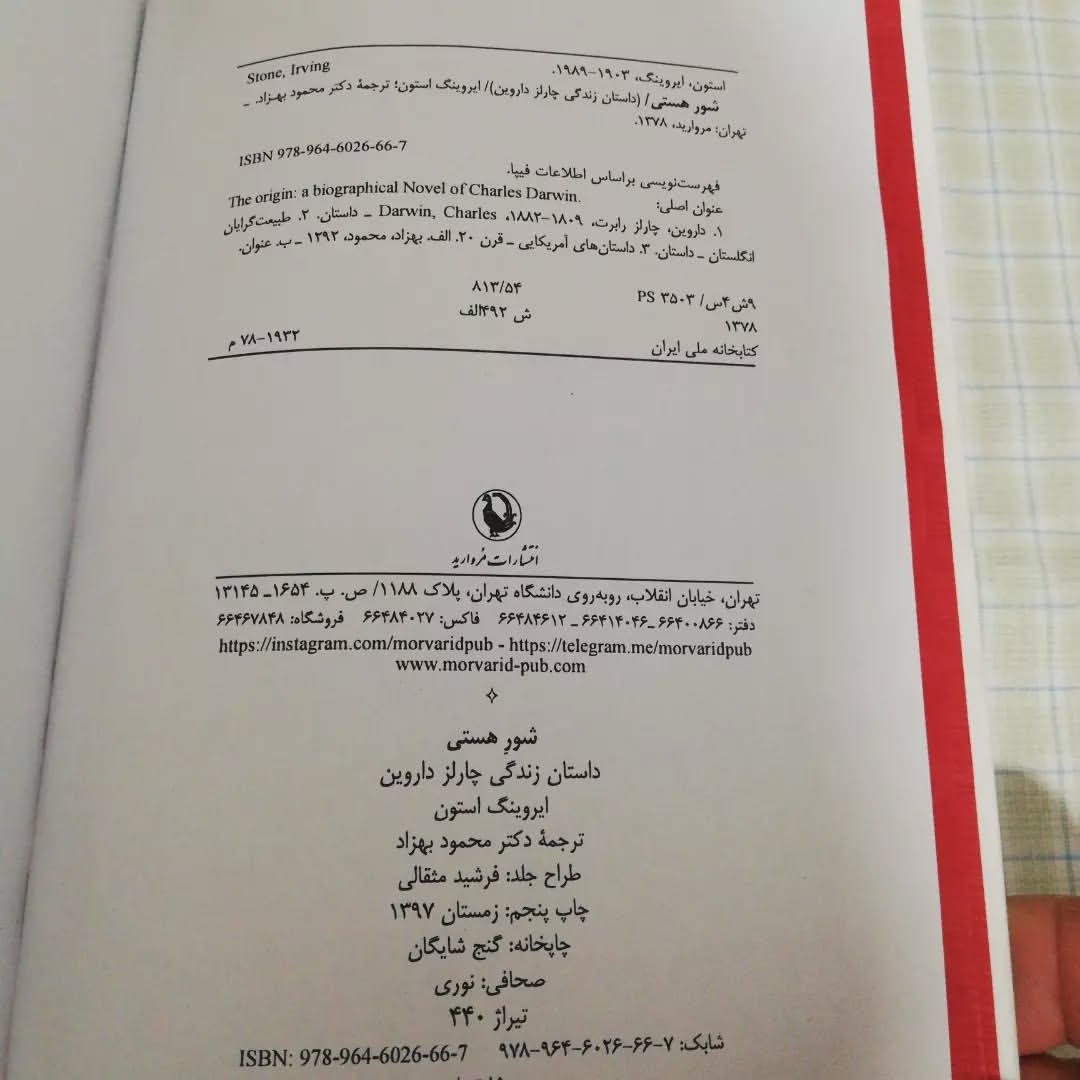 Stone, Irving
استون، ایروینگ، ۱۹۰۳-۱۹۸۹.
شور هستی/ (داستان زندگی چارلز داروین)/ ایروینگ استون؛ ترجمهٔ دکتر محمود بهزاد. ـ
تهران: مروارید، ۱۳۷۸.
ISBN 978-964-6026-66-7
فهرست‌نویسی براساس اطلاعات فیپا.
عنوان اصلی: The origin: a biographical Novel of Charles Darwin.
۱. داروین، چارلز رابرت، ۱۸۰۹-۱۸۸۲، Darwin, Charles ـ داستان. ۲. طبیعت‌گرایان
انگلستان ـ داستان. ۳. داستان‌های آمریکایی ـ قرن ۲۰. الف. بهزاد، محمود، ۱۲۹۲ ـ ب. عنوان.
۹ش۴س/ PS ۳۵۰۳ ۸۱۳/۵۴
۱۳۷۸ ش ۴۹۲الف
کتابخانه ملی ایران ۱۹۳۲-۷۸ م
انتشارات مروارید
تهران، خیابان انقلاب، روبه‌روی دانشگاه تهران، پلاک ۱۱۸۸/ ص. پ. ۱۶۵۴ـ ۱۳۱۴۵
دفتر: ۶۶۴۰۰۸۶۶ ـ۶۶۴۱۴۰۴۶ ـ ۶۶۴۸۴۶۱۲ فاکس: ۶۶۴۸۴۰۲۷ فروشگاه: ۶۶۴۶۷۸۴۸
https://instagram.com/morvaridpub - https://telegram.me/morvaridpub
www.morvarid-pub.com
شورِ هستی
داستان زندگی چارلز داروین
ایروینگ استون
ترجمهٔ دکتر محمود بهزاد
طراح جلد: فرشید مثقالی
چاپ پنجم: زمستان ۱۳۹۷
چاپخانه: گنج شایگان
صحافی: نوری
تیراژ ۴۴۰
شابک: ۷-۶۶-۶۰۲۶-۹۶۴-۹۷۸ ISBN: 978-964-6026-66-7